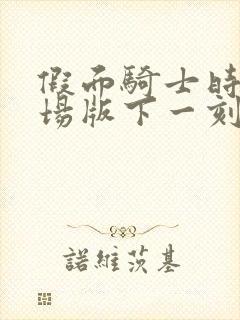 假面騎士時
場版下一刻
諾維茨基